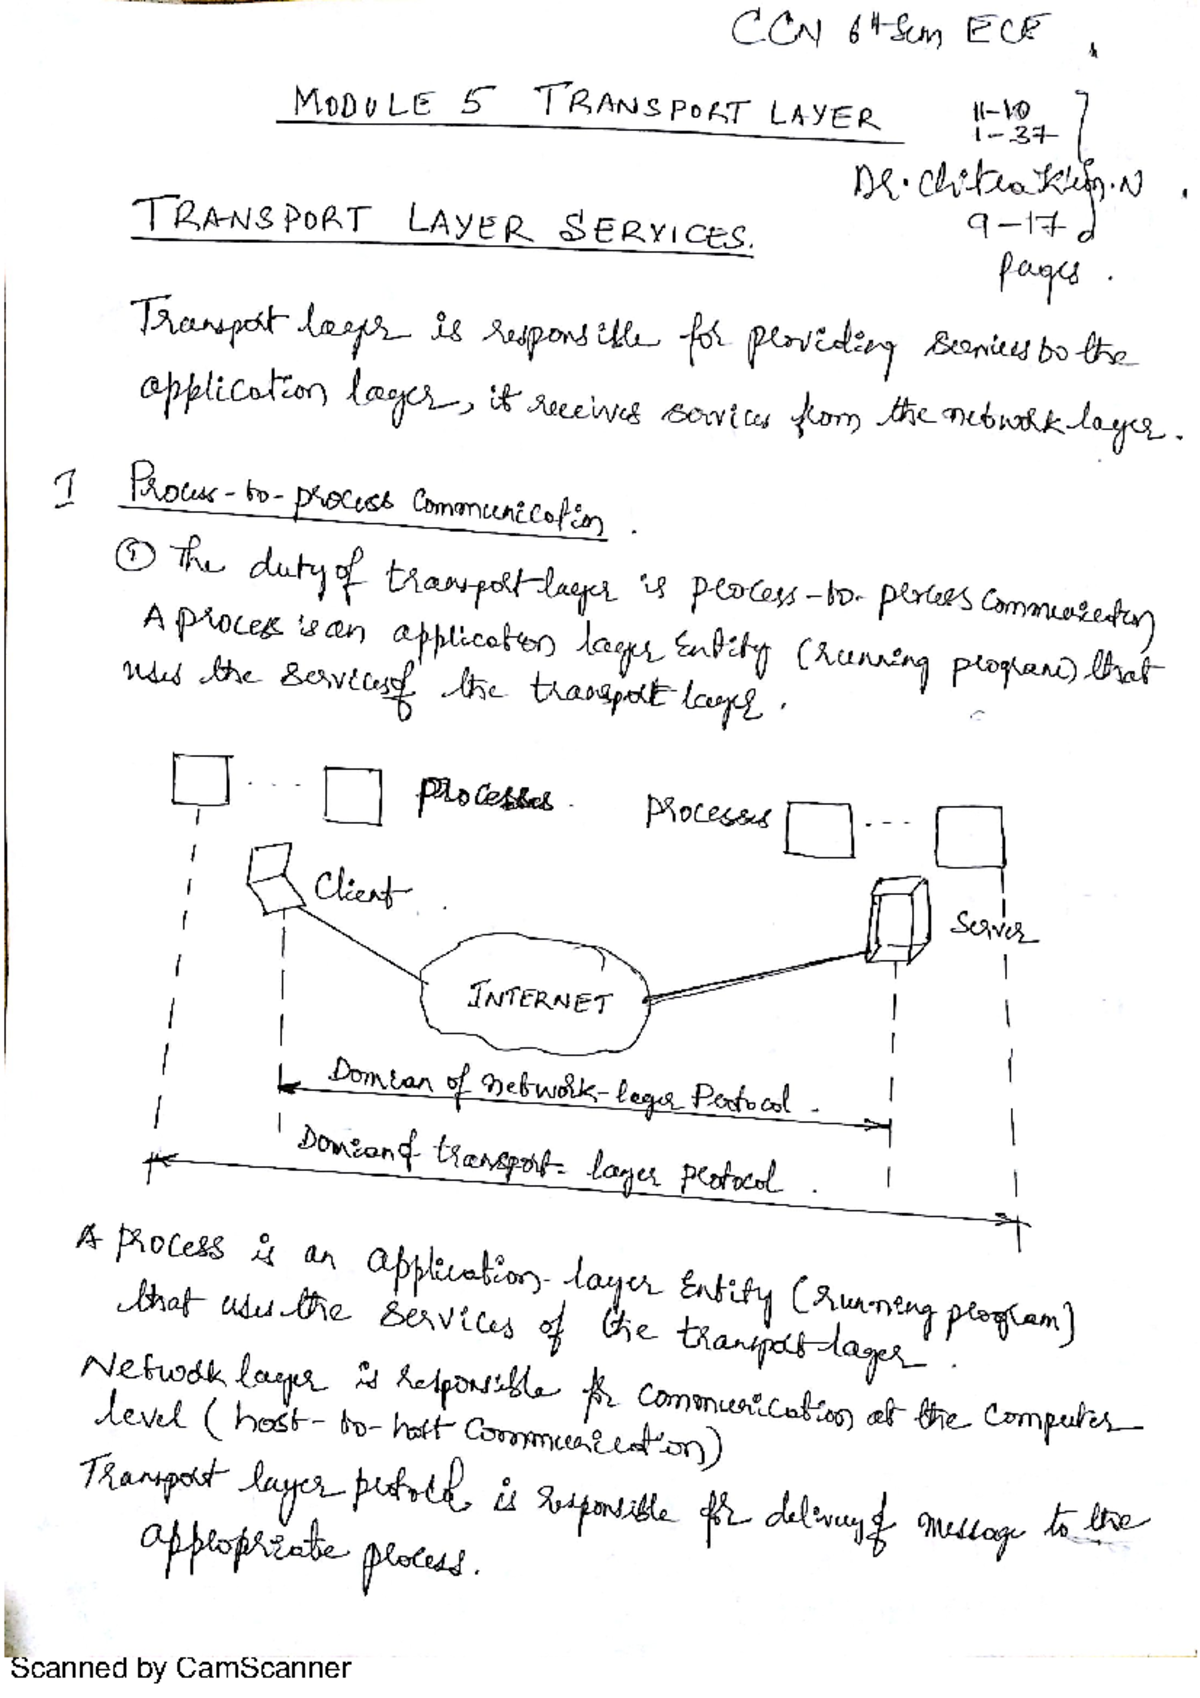 CCN 6th Sem ECE
MODULE 5 TRANSPORT LAYER
11-10
1-37
Dr. Chitra Kiran.N
9-17
pages.
TRANSPORT LAYER SERVICES.
Transport layer is responsible for providing services to the
application layer, it receives services from the network layer.
I Process-to-process Communication.
① The duty of transport layer is process-to-process Communication
A process is an application layer Entity (running program) that
uses the services of the transport layer.
Processes.
Processes
Client
Server
INTERNET
Domian of network-layer Protocol.
Domian of transport-layer protocol.
A process is an application-layer Entity (running program)
that uses the services of the transport layer.
Network layer is responsible for communication at the computer
level (host-to-host communication)
Transport layer protocol is responsible for delivery of message to the
appropriate process.
Scanned by CamScanner